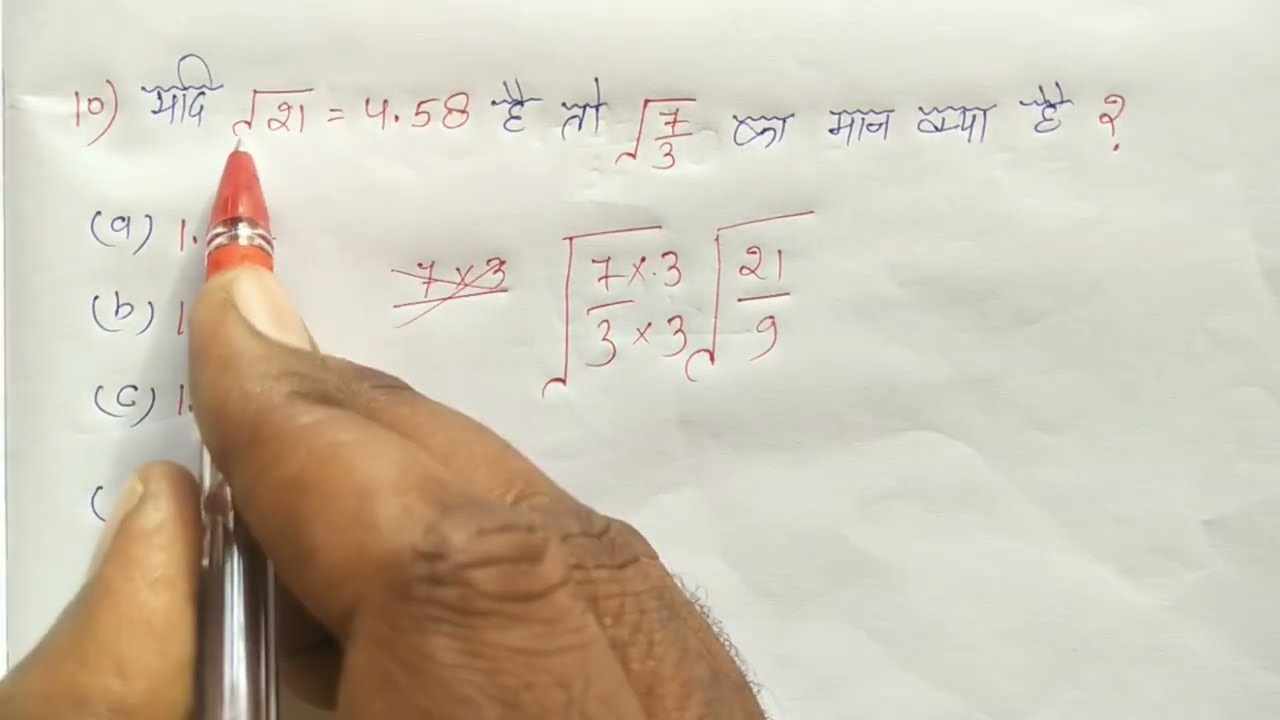 10) यदि √21 = 4.58 है तो √7/3 का मान क्या है ?
(a) 1.
(b) 1
(c) 1.
(
7 × 3
√7×3/3×3 √21/9